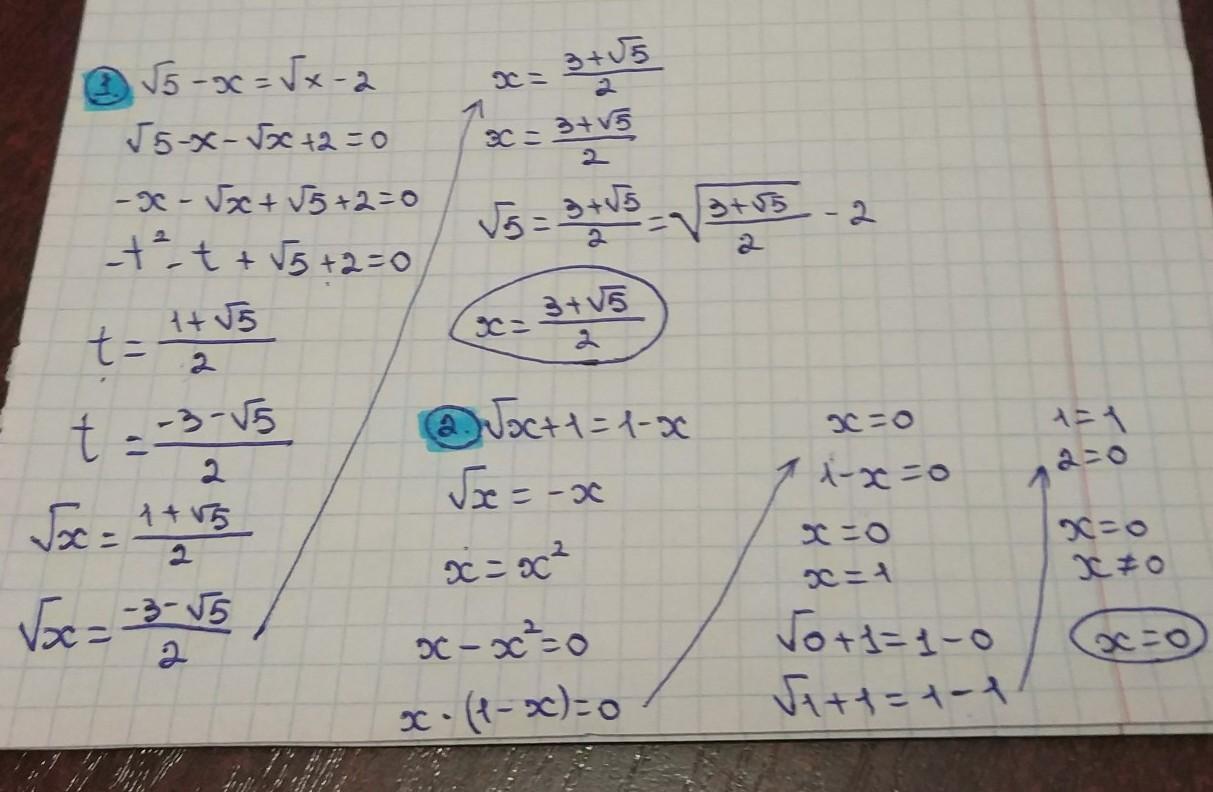 1. √5 - x = √x - 2
√5 - x - √x + 2 = 0
-x - √x + √5 + 2 = 0
-t² - t + √5 + 2 = 0
t = (1+√5)/2
t = (-3-√5)/2
√x = (1+√5)/2
√x = (-3-√5)/2
x = (3+√5)/2
x = (3+√5)/2
√5 = (3+√5)/2 = √((3+√5)/2) - 2
x = (3+√5)/2
2. √x + 1 = 1 - x
√x = -x
x = x²
x - x² = 0
x · (1-x) = 0
x = 0
1 - x = 0
x = 0
x = 1
√0 + 1 = 1 - 0
√1 + 1 = 1 - 1
1 = 1
2 = 0
x = 0
x ≠ 0
x = 0